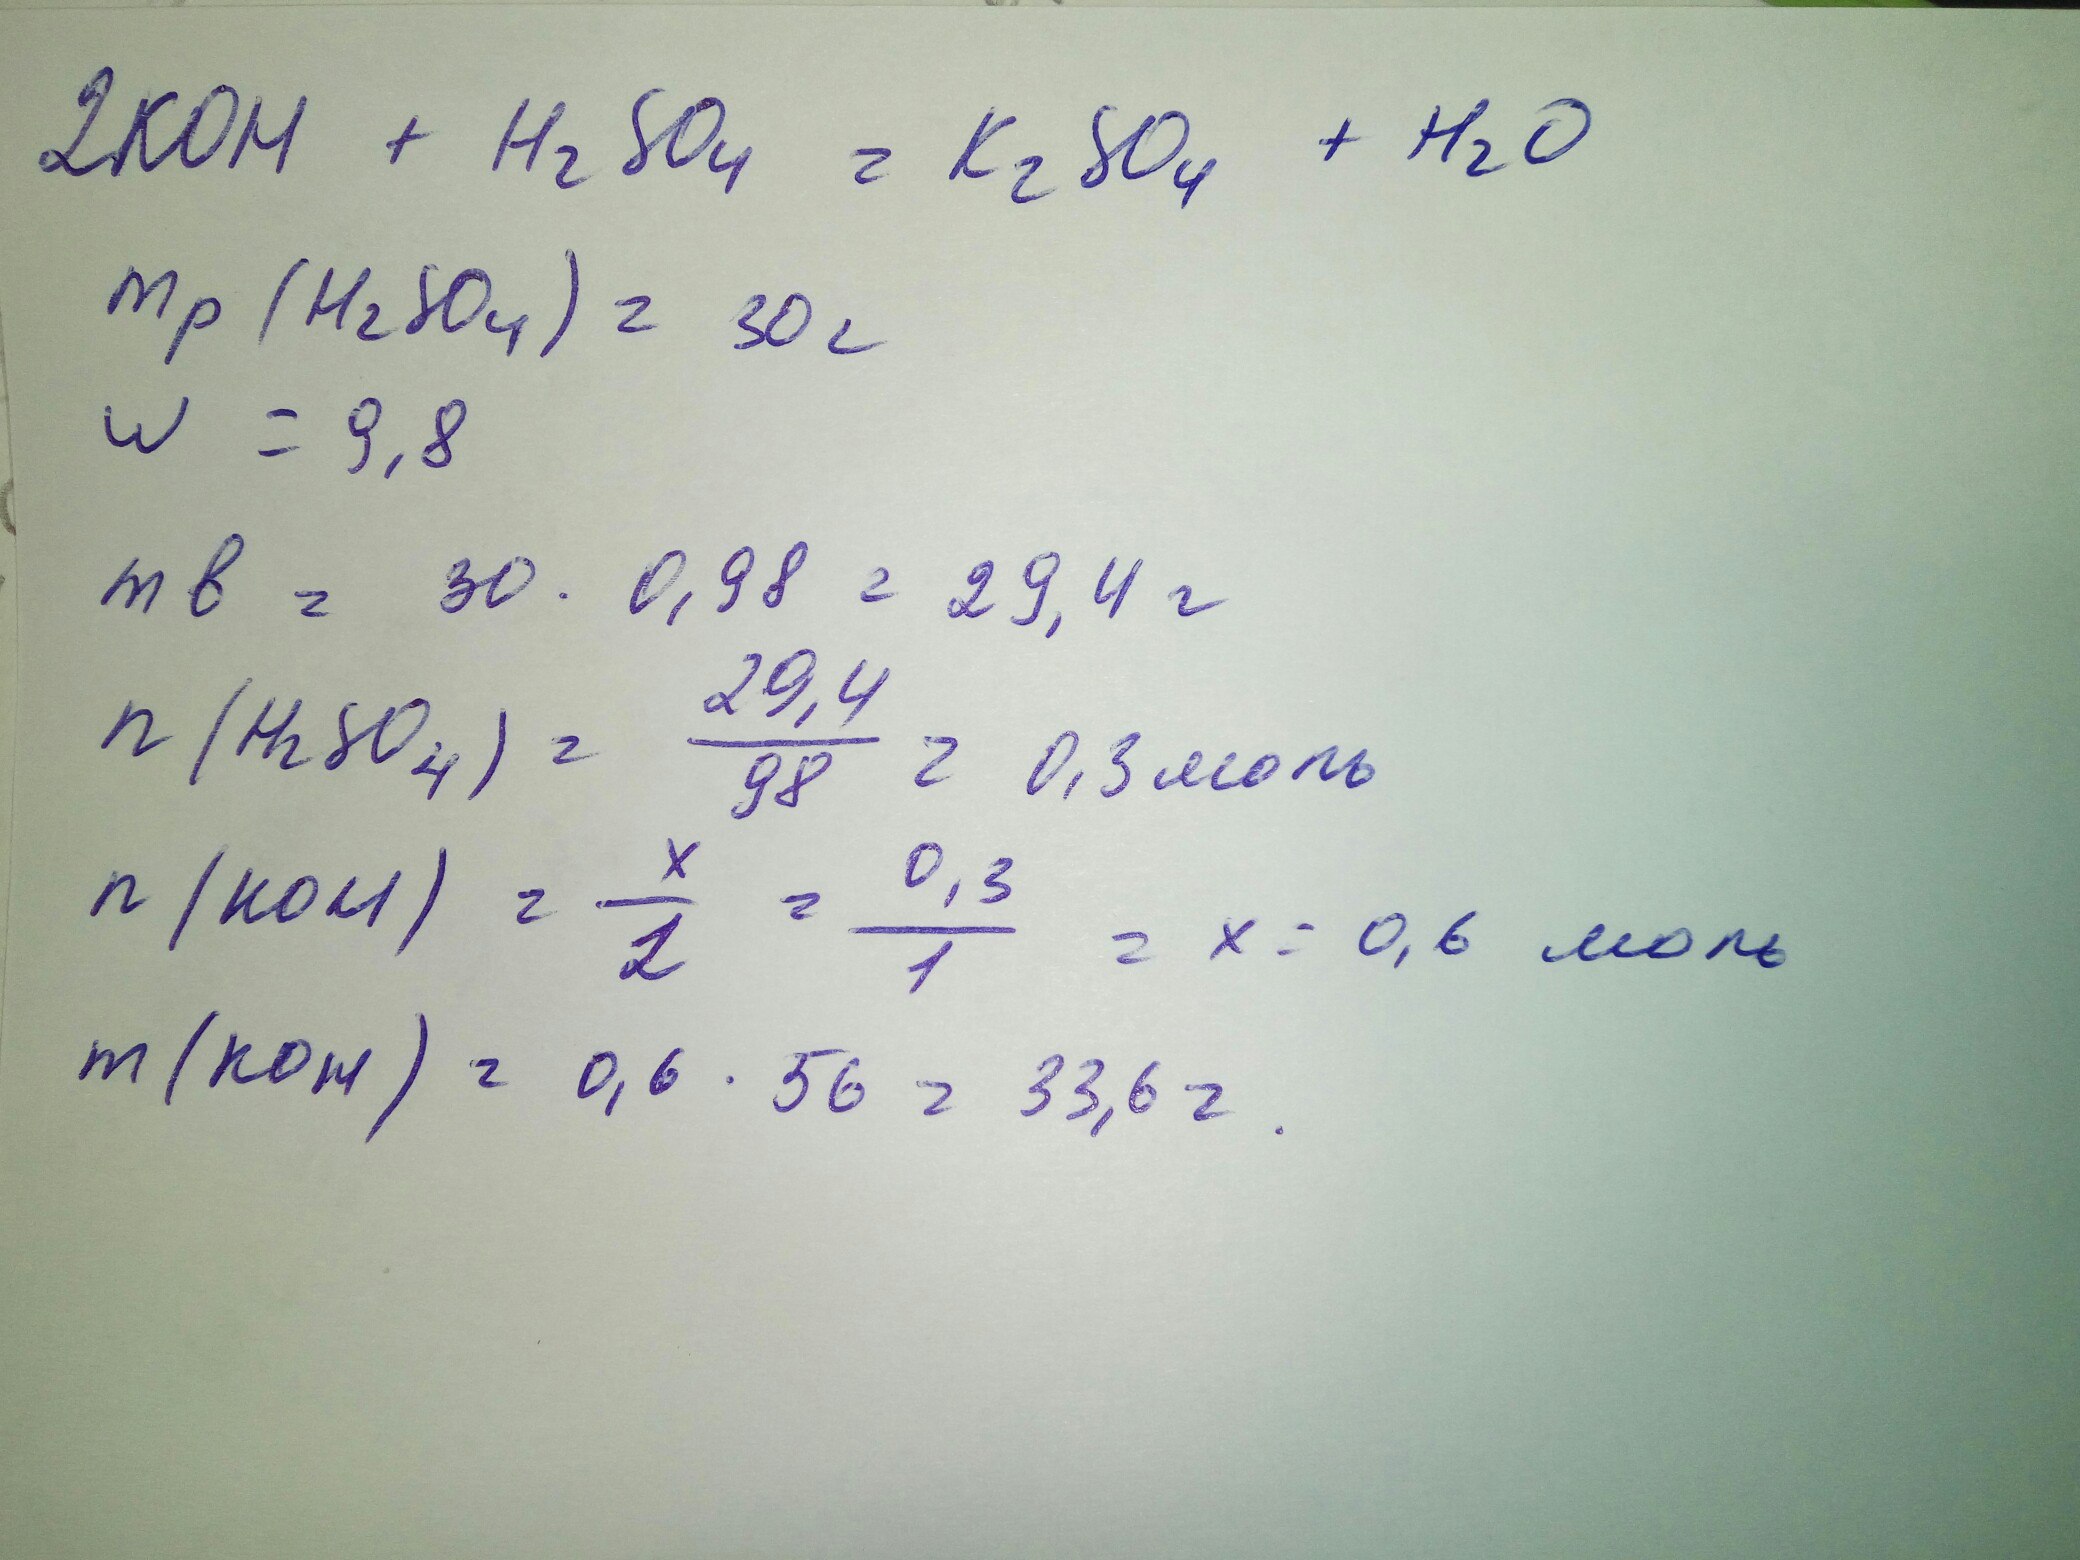 2KOH + H₂SO₄ = K₂SO₄ + H₂O
mp (H₂SO₄) = 30г
w = 9,8
mв = 30 · 0,98 = 29,4г
n (H₂SO₄) = 29,4/98 = 0,3 моль
n (KOH) = x/2 = 0,3/1 = x = 0,6 моль
m (KOH) = 0,6 · 56 = 33,6г.